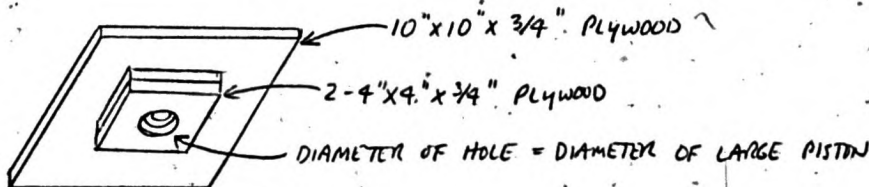 10"x10"x 3/4" PLYWOOD
2-4"x4"x3/4" PLYWOOD
DIAMETER OF HOLE = DIAMETER OF LARGE PISTON